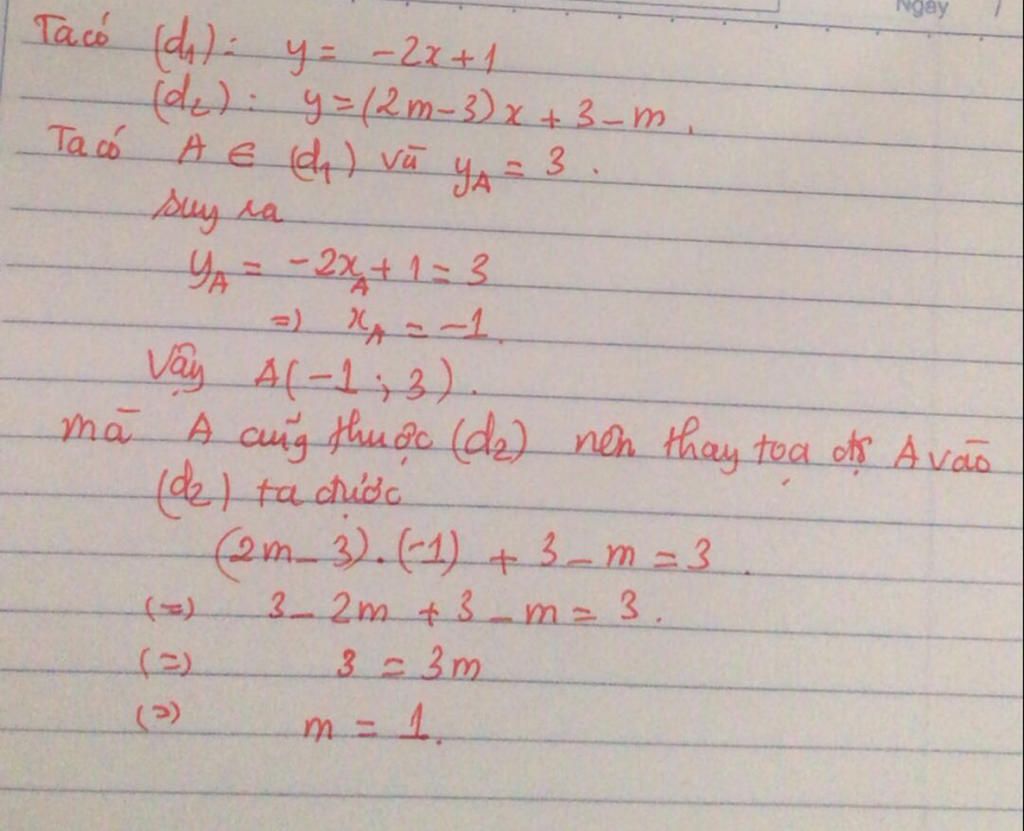 Ngày /
Ta có (d₁): y = -2x + 1
(d₂): y = (2m - 3)x + 3 - m.
Ta có A ∈ (d₁) và y_A = 3.
suy ra
y_A = -2x_A + 1 = 3
=> x_A = -1.
Vậy A(-1; 3).
mà A cũng thuộc (d₂) nên thay tọa độ A vào
(d₂) ta được
(2m - 3).(-1) + 3 - m = 3.
(=) 3 - 2m + 3 - m = 3.
(=) 3 = 3m
(=) m = 1.